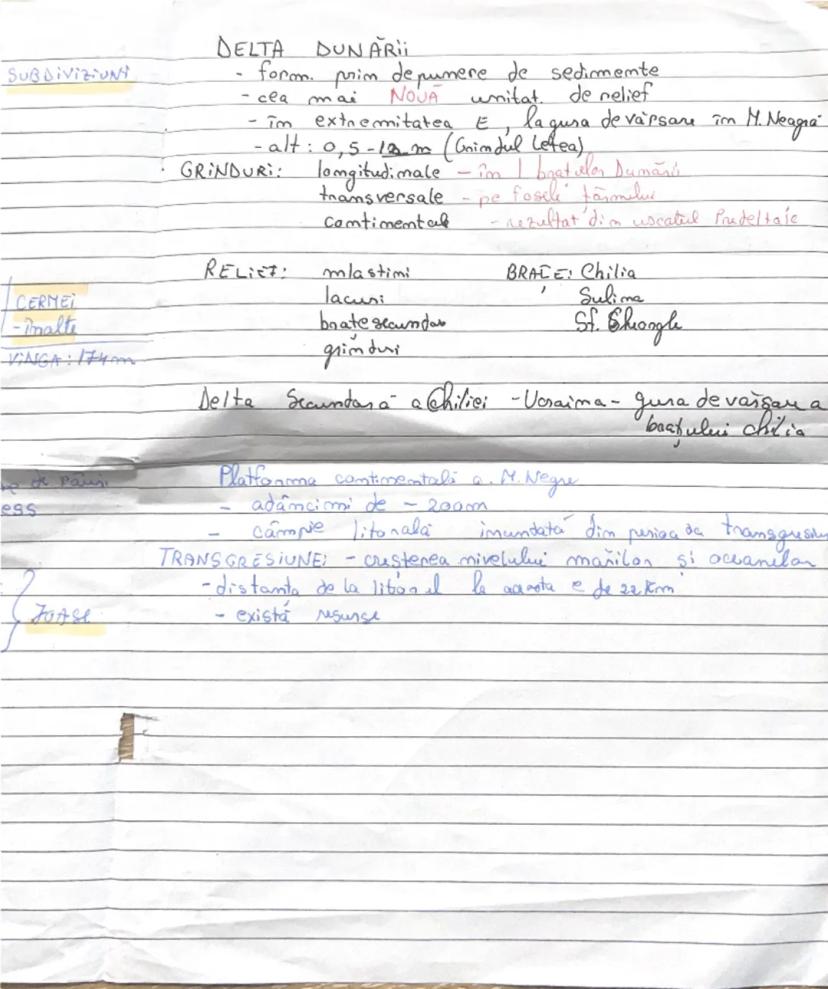 DELTA DUNĂRII
SUBDIVIZIUNI
- form. prin depunere de sedimente
- cea mai NOUĂ unitat. de relief
- în extremitatea E, la gura de vărsare în M. Neagră
- alt: 0,5 - 12 m (Grindul Letea)
GRINDURI: longitudinale - în l brațelor Dunării
transversale - pe fosele țărmului
continental - rezultat din uscatul Predeltaic
RELIEF: mlastini BRAȚE: Chilia
lacuri Sulina
CERMEI
- înalte
brate secundar Sf. Gheorghe
VINGA: 174m
grinduri
Delta Secundară a Chiliei - Ucraina - gura de vărsare a
brațului chilia
Platforma continentală a M. Negre
de
ess
- adâncimi de - 200m
- câmpie litorală inundată din perioada transgresiunii
TRANSGRESIUNE: - creșterea nivelului mărilor și oceanelor
- distanta de la litoral la aceasta e de 22 Km
JOASE
- există resurse